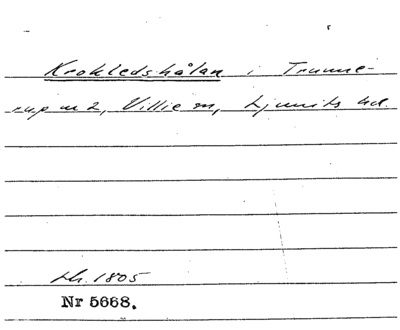 Krokledshålan i Trunne-
rup n 2, Villie sn, Ljunits hd.
Lh. 1805
Nr 5668.